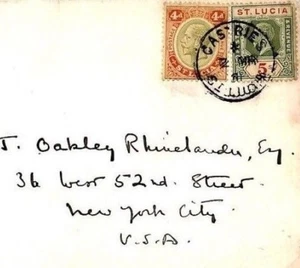 4d
ST. LUCIA
CASTRIES
ST. LUCIA
5/-
T. Oakley Rhinelander, Esq.
36 West 52nd. Street.
New York City.
U.S.A.